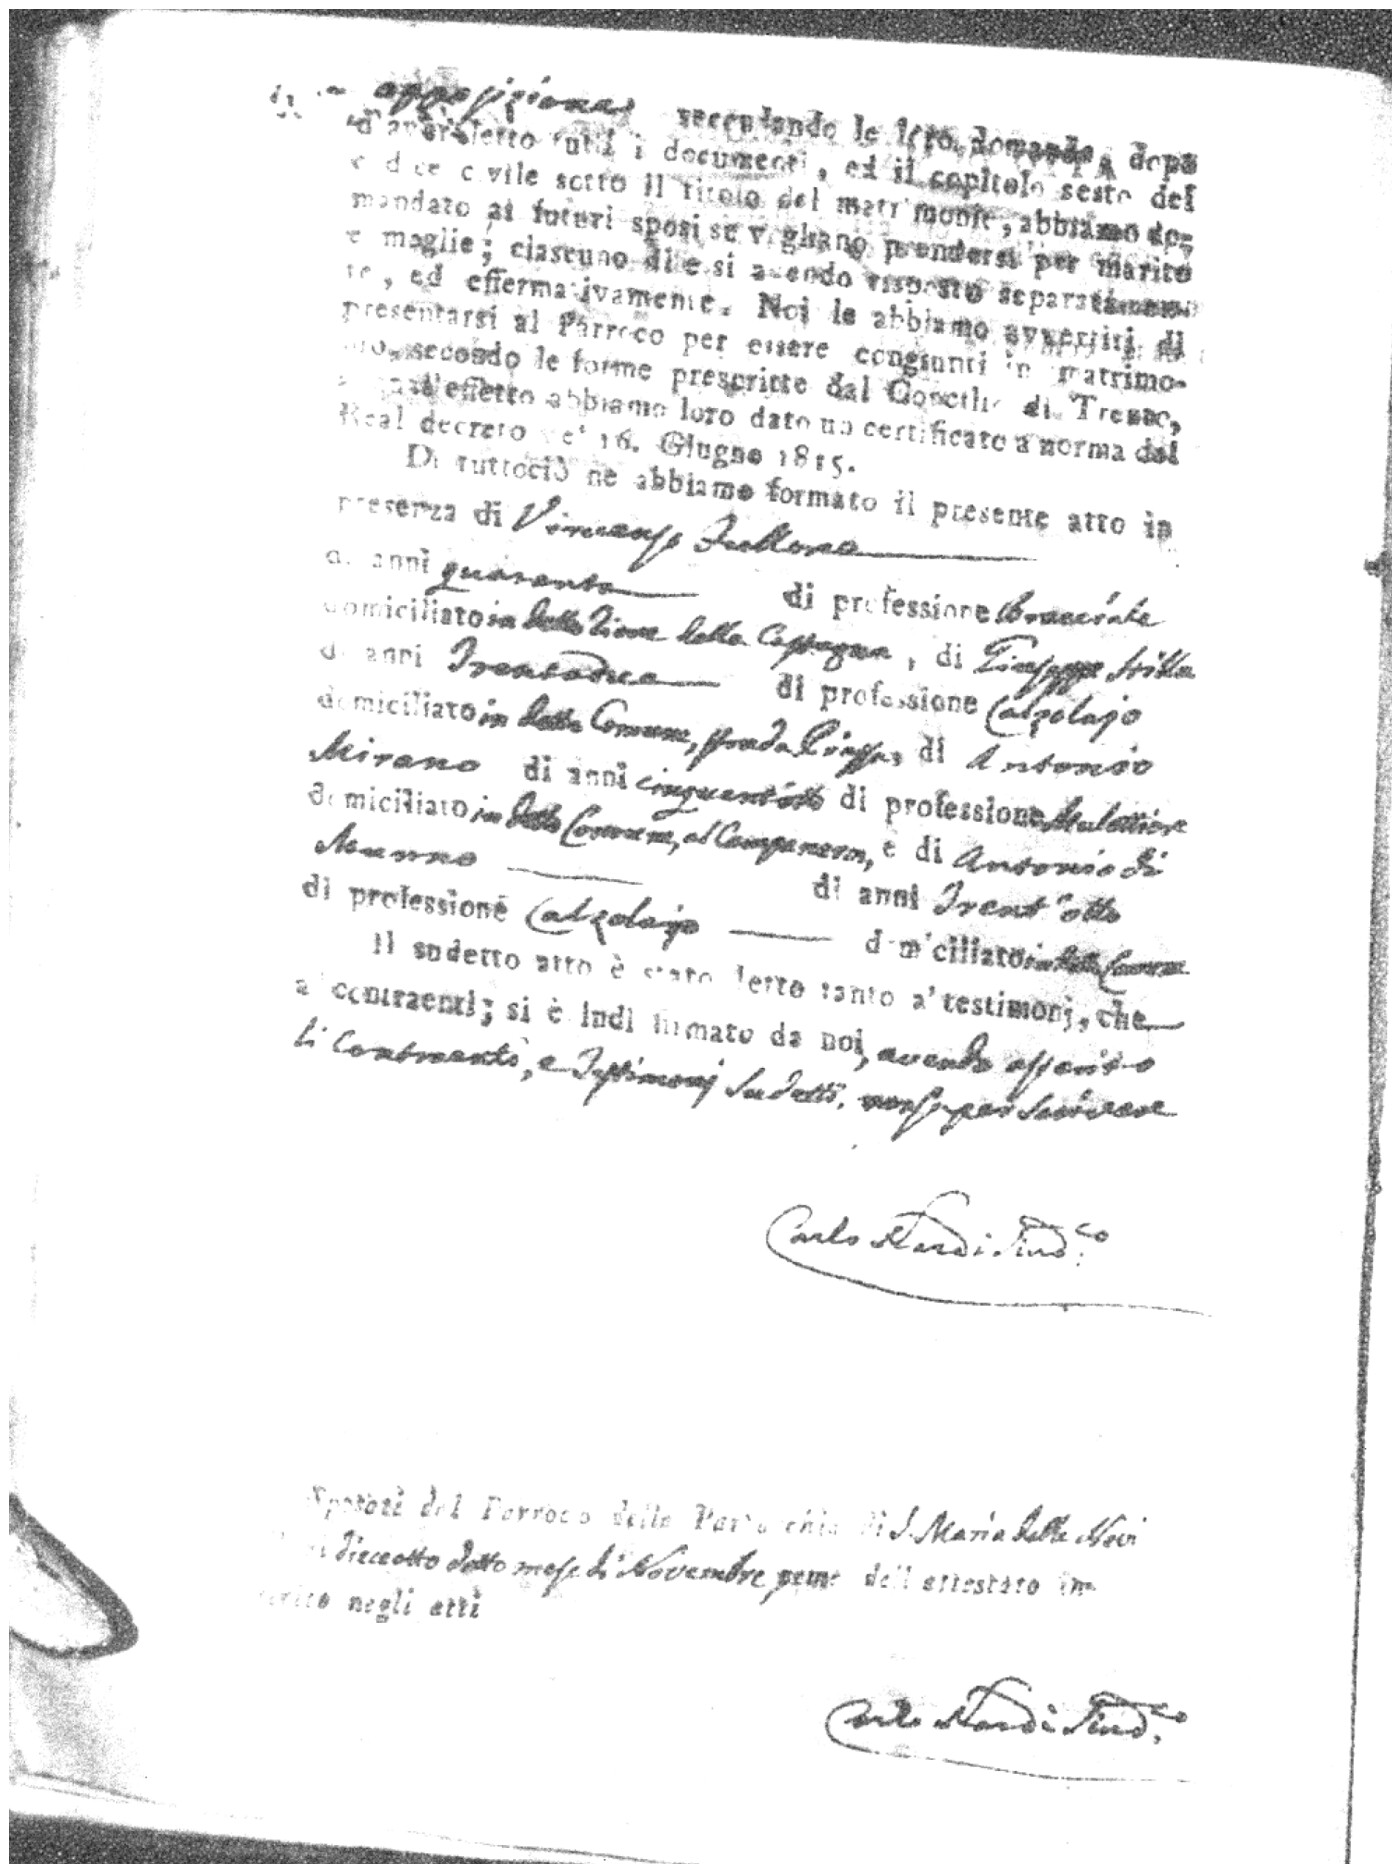 opposizione secondando le loro domande, dopo
d'aver letto tutti i documenti, ed il capitolo sesto del
codice civile sotto il titolo del matrimonio, abbiamo do-
mandato ai futuri sposi se vogliano prendersi per marito
e moglie; ciascuno di essi avendo risposto separatamen-
te, ed affermativamente. Noi le abbiamo avvertiti di
presentarsi al Parroco per essere congiunti in matrimo-
nio, secondo le forme prescritte dal Concilio di Trento,
all'effetto abbiamo loro dato un certificato a norma del
Real decreto de' 16. Giugno 1815.
Di tuttociò ne abbiamo formato il presente atto in
presenza di Vincenzo
di anni quaranta di professione Bracciale
domiciliato in detto Tione della , di Giuseppe
di anni Trentadue di professione Calzolajo
domiciliato in detta Comune, strada Piazza, di Antonio
Mirano di anni cinquantotto di professione Mulattiere
domiciliato in detta Comune, al , e di Antonio di
Munno di anni Trent'otto
di professione Calzolajo domiciliato in detta Comune
Il sudetto atto è stato letto tanto a' testimonj, che
a' contraenti; si è indi firmato da noi, avendo asserito
li Contraenti, e Testimonj sudetti, non saper scrivere
Carlo Nardi Sind.co
Sposati dal Parroco della Parrocchia di S. Maria della Nevi
dieceotto detto mese di Novembre come dell'attestato in-
serito negli atti
Carlo Nardi Sind.co